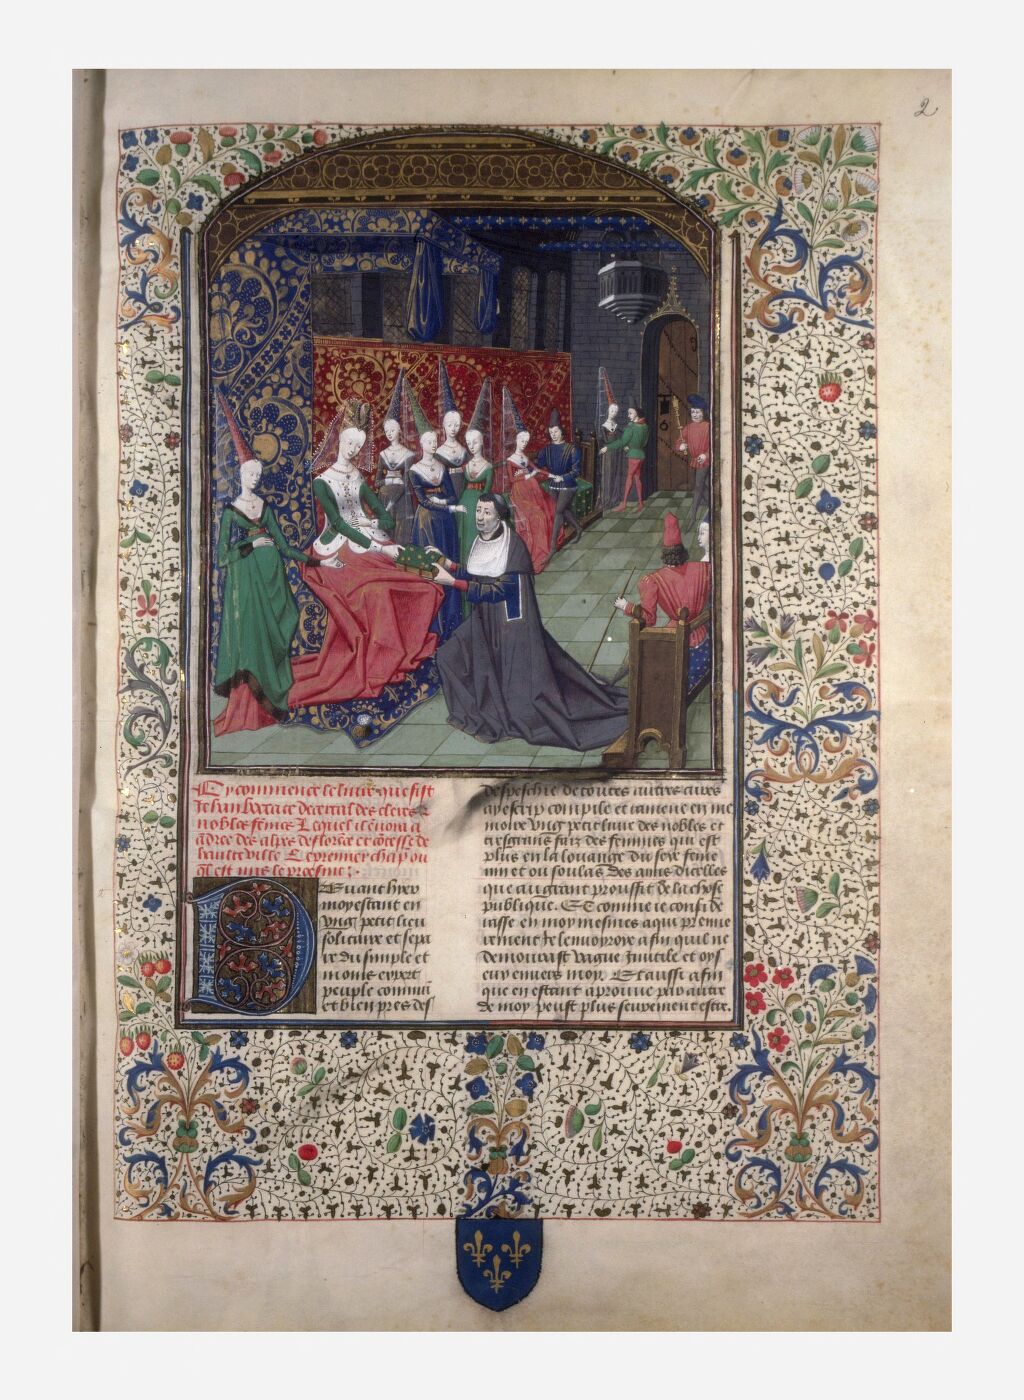 2
Cy commence le livre que fist
Jehan bocace de certal des cleres &
nobles femmes Lequel il envoia a
andree des alpes de florence contesse de
haulteville Et premier chap ou
est mis le proesme
Devant hier
moy estant en
ung petit lieu
solitaire et sepa
re du simple et
moins expert
peuple commun
et bien pres des
despeschie de toutes autres cures
ay escript compile et ramene en me
moire ung petit livre des nobles et
tresgrans faiz des femmes qui est
plus en la louange du sexe femi
nin et ou soulas des amis dicelles
que au grant prouffit de la chose
publique. Et comme je conside
rasse en moy mesmes a qui premie
rement je lenvoyroye afin quil ne
demourast vague inutile et oys
eux envers moy. Et aussi afin
que en estant aprouve par autre
de moy peust plus seurement estre.